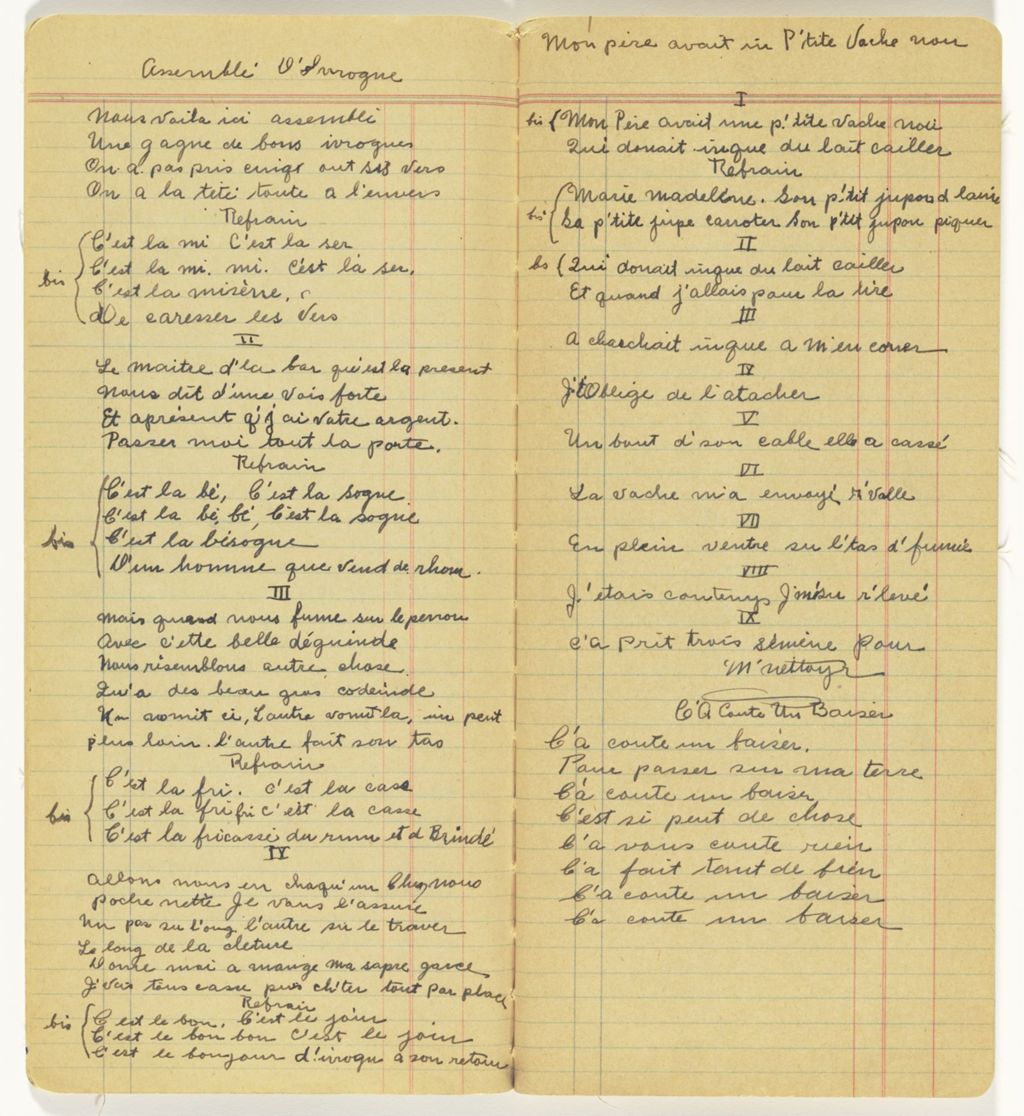 Assemblé D'Ivrogne
Nous voila ici assemblé
Une gagne de bons ivrognes
On a pas pris cinq out six vers
On a la tété toute a l'envers
Refrain
bis
C'est la mi C'est la ser
C'est la mi. mi. C'est la ser.
C'est la misèrre,
De caresser les Vers
II
Le maitre d'la bar qu'est la present
Nous dit d'une vois forte
Et apresent q'j ai votre argent.
Passer moi tout la porte.
Refrain
bis
C'est la bé, C'est la sogne
C'est la bé, bé, C'est la sogne
C'est la bésogne
D'un homme que vend de rhom.
III
Mais quand nous fume sur le perron
Avec c'ette belle déguinde
Nous risemblons autre chose
Qu'a des beau gros codeinde
Un vomit ci, L'autre vomit la, un peut
plus loin. l'autre fait son tas
Refrain
bis
C'est la fri. C'est la case
C'est la fri fri c'est la casse
C'est la fricassé du rum et d Brindé
IV
Allons nous en chaqu'un Chez nous
Poche nette Je vous l'assure
Un pas su l'ong l'autre su le traver
Le long de la cleture
Donne moi a mange ma sapre garce
J'vais tous casse puis ch'ter tout par place
Refrain
bis
C'est le bon. C'est le jour
C'est le bon bon C'est le jour
C'est le bonjour d'ivrogn a son retour
Mon père avait in P'tite Vache noir
I
bis
Mon Père avait une p'tite vache noir
Qui donait inque du lait cailler
Refrain
bis
Marie madeleine. Son p'tit jupon d laine
Sa p'tite jupe carroter Son p'tit jupon piquer
II
bs
Qui donait inque du lait cailler
Et quand j'allais pour la tire
III
A charchait inque a M'en corner
IV
J'tOblige de l'atacher
V
Un bout d'son cable elle a cassé
VI
La vache m'a envoyé r'volle
VII
En plein ventre su l'tas d'fumié
VIII
J'étais contenp J'mésu r'levé
IX
c'a prit trois séméne pour
M'nettoyr
C'A Coute Un Baiser
C'a coute un baiser.
Pour passer sur ma terre
C'a coute un baiser
C'est si peut de chose
C'a vous coute rien
C'a fait tant de bien
C'a coute un baiser
C'a coute un baiser